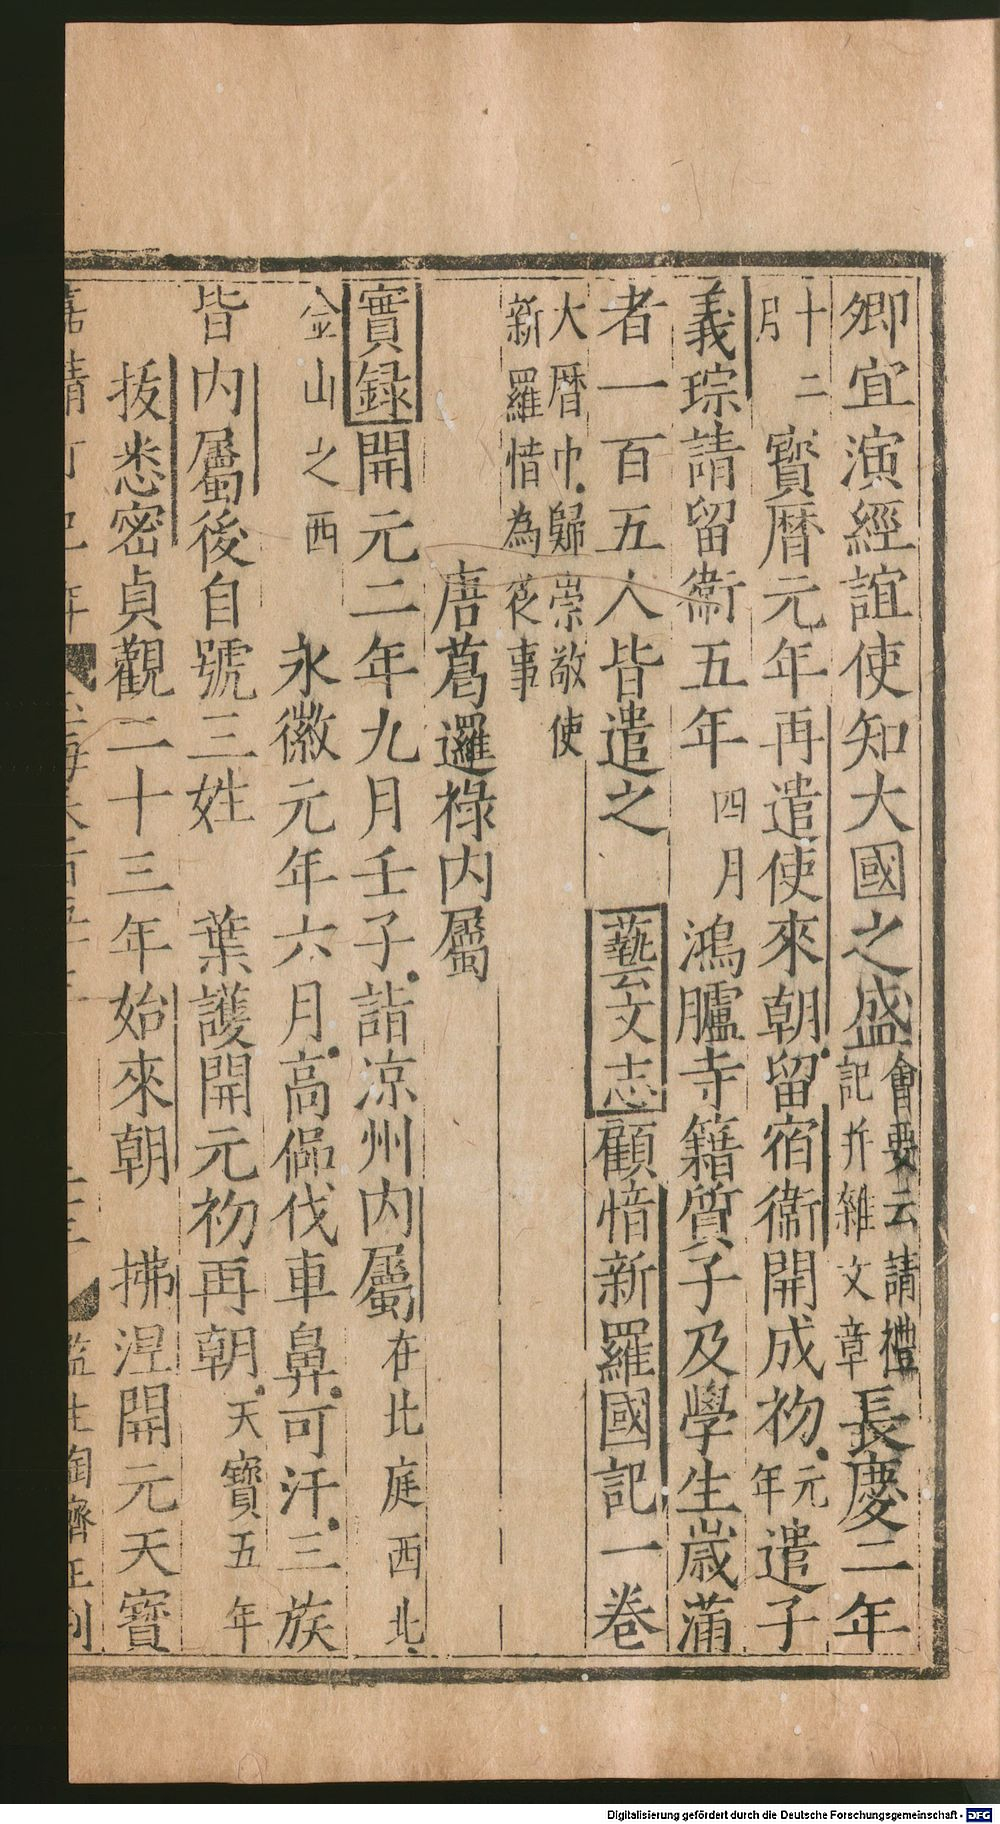 卿宜演經誼使知大國之盛會要云請禮記并雜文章長慶二年
十二月寳曆元年再遣使來朝留宿衞開成初元年遣子
義琮請留衞五年四月鴻臚寺籍質子及學生歲滿
者一百五人皆遣之 藝文志顧愔新羅國記一卷
大曆中歸崇敬使新羅愔為從事
唐葛邏祿内屬
實録開元二年九月壬子詣涼州内屬在北庭西北
金山之西 永徽元年六月高偘伐車鼻可汗三族
皆内屬後自號三姓 葉護開元初再朝天寶五年
拔悉密貞觀二十三年始來朝 拂涅開元天寳
嘉靖 監生陶濟正刊
Digitalisierung gefördert durch die Deutsche Forschungsgemeinschaft - DFG